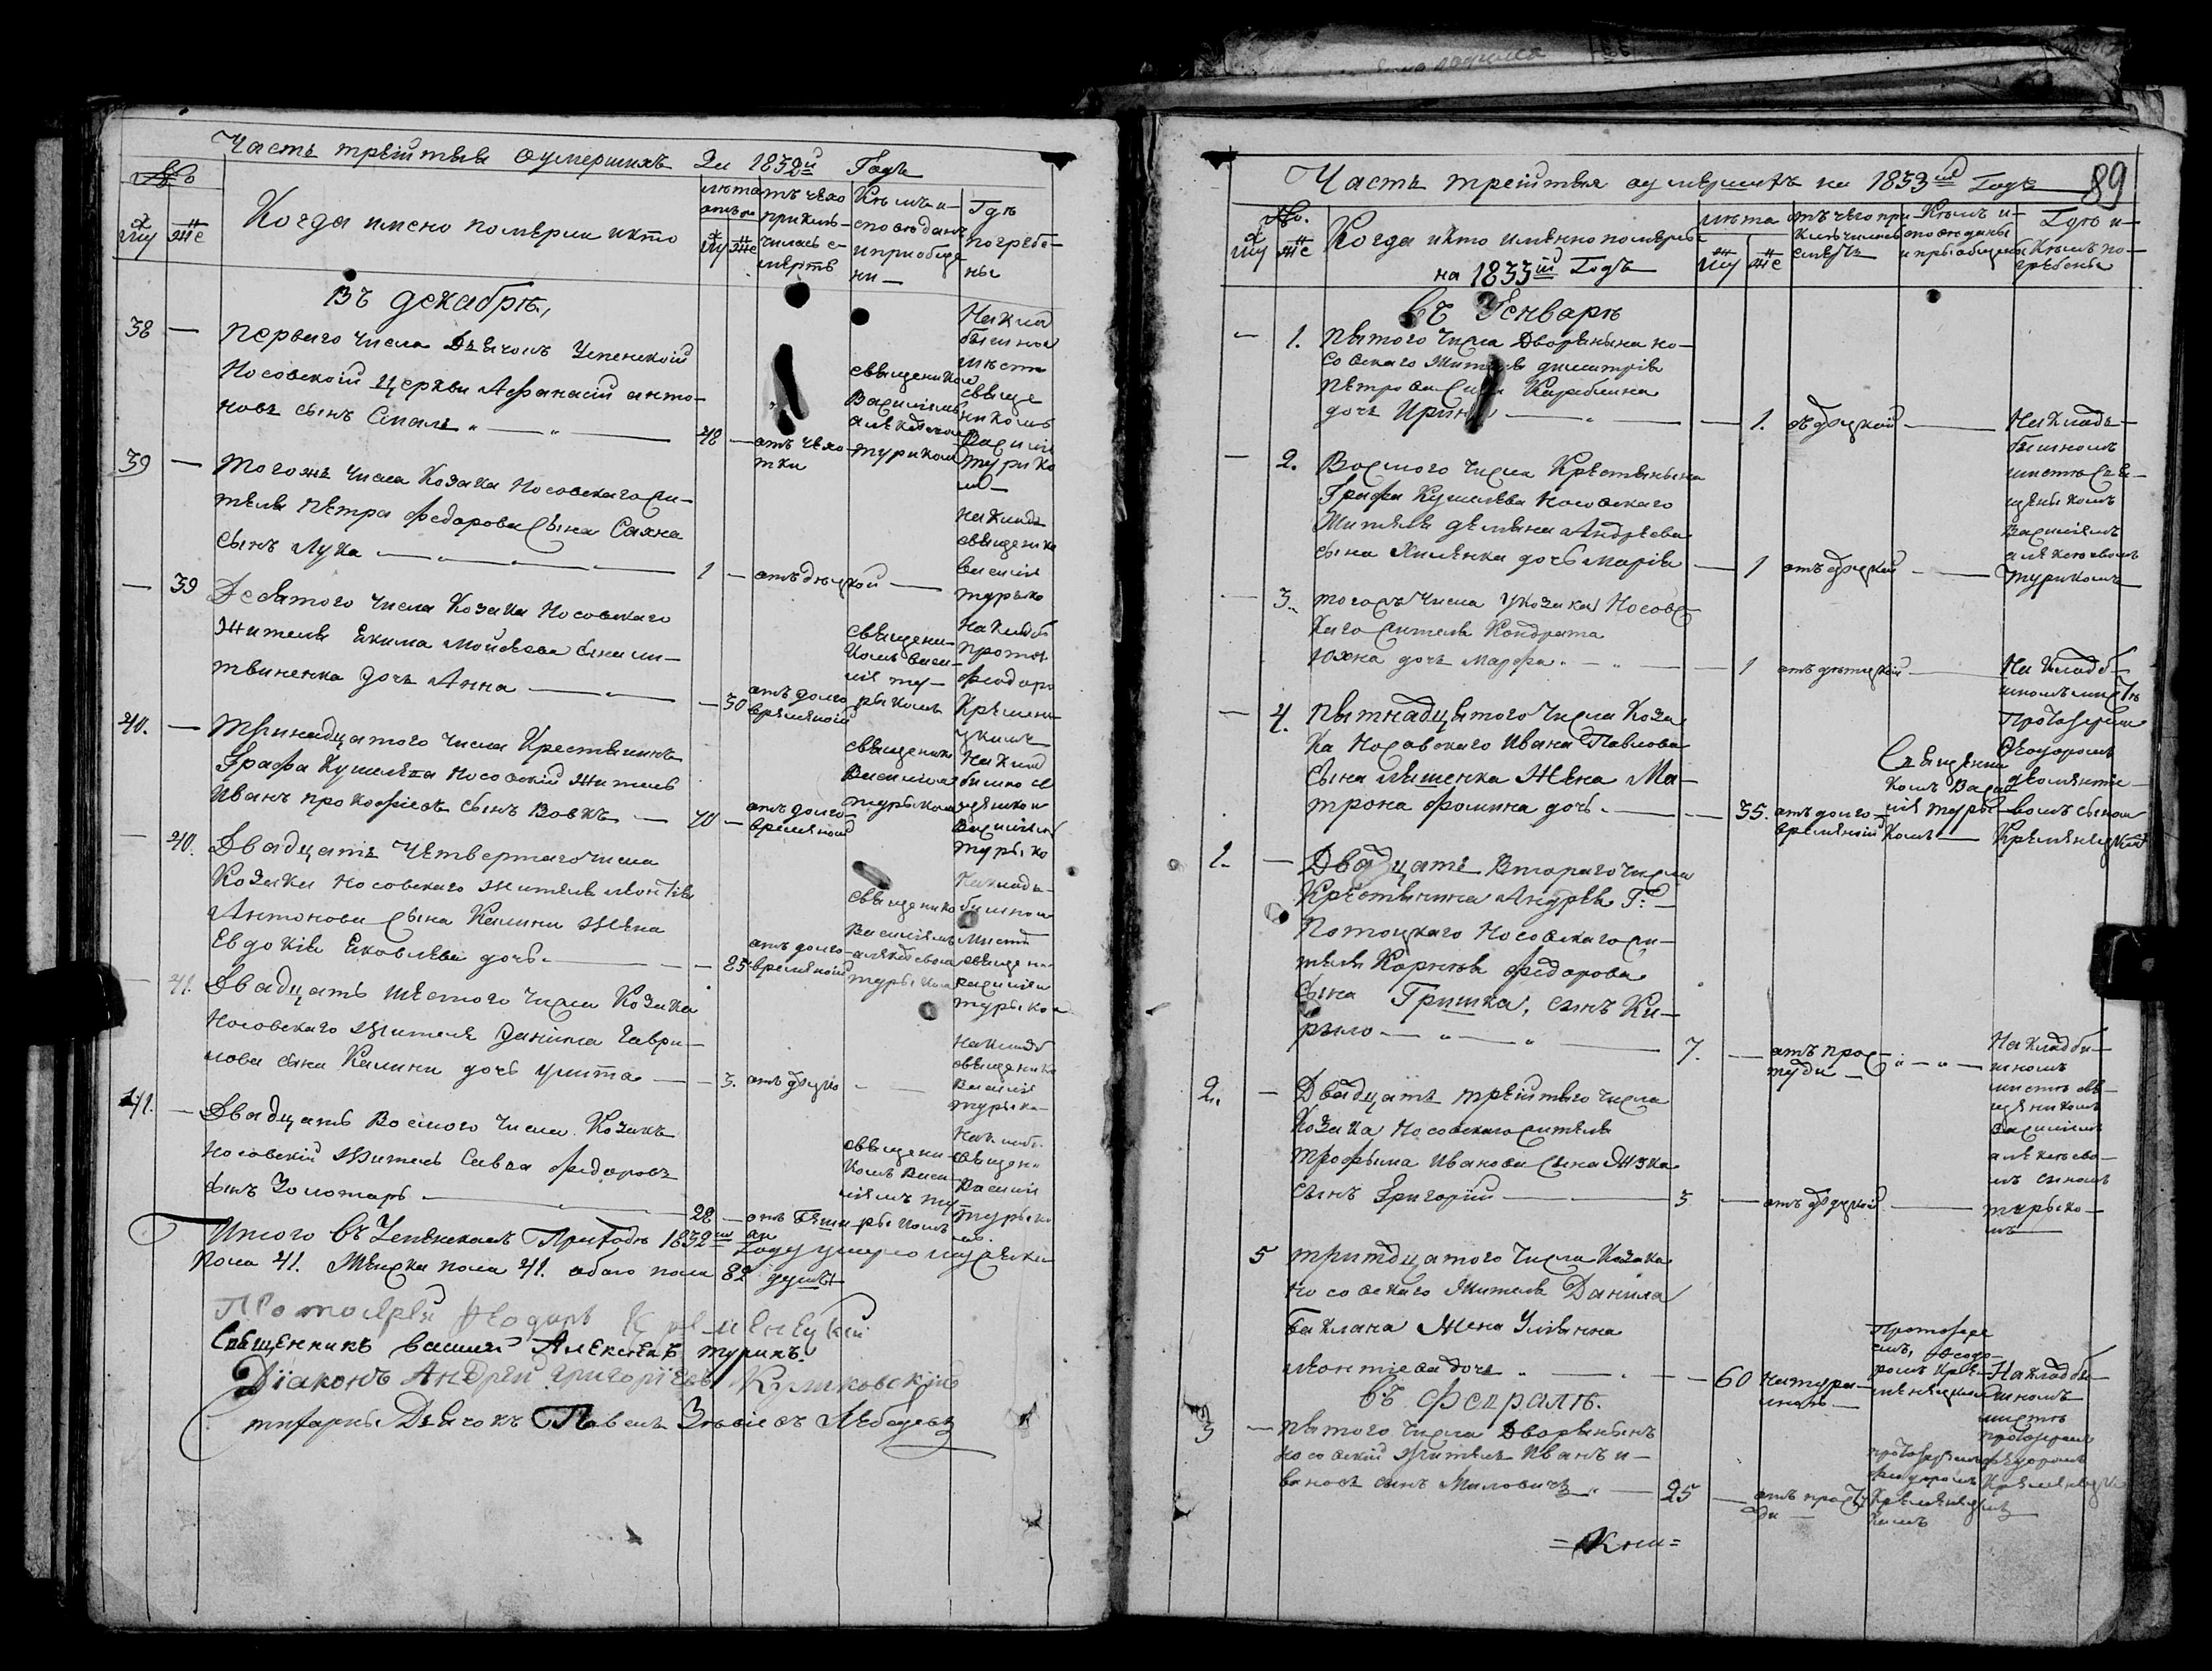 Часть третьтѣя оумершихъ За 1832й Годъ
№
Му
Же
Когда имено померли икто
лѣта
Му Же
отъ чего приклю-
чилась с-
мерть
Кѣмъ и-
споведан
иприобще
ни —
Гдѣ
погребе-
ны
Въ декабрѣ,
38 —
первого числа Дьячокъ Успенской
Носовской церкви Афанасій анто-
новъ сынъ
48 — отъ чехо-
тки
священиком
Василіем
алексѣевом
туриком
На клад
бишном
мѣсти
свяще
никомъ
Василіем
турико
м —
39 —
того жъ числа Козака Носовскаго жи-
теля Петра федорова сына Сахна
сынъ Лука
1 — отъ дѣцкой
на кладъ
священико
Василія
турыко
— 39
Девятого числа Козака Носовскаго
жителя Якима Мойсѣева сына ли-
твиненка дочь Анна
— 30 отъ долго-
временной
священи-
комъ васи-
лія ту-
рыкомъ
На кладб
протое
феодоро
Кремени
цкимъ
40. —
Тринадцатого числа Крестьянинъ
Графа Кушелева Носовскій житель
Иванъ прокофіевъ сынъ Вовкъ
70 — отъ долго-
временной
священико
Василіем
турыком
На клад
бишно св
щеником
Василіем
турыко
— 40.
Двадцать Четвертаго числа
Козака Носовскаго жителя леонтія
Антонова сына Калини жена
Евдокія Яковлѣва дочь
— 85 отъ долго-
временной
священико
Василіемъ
алексѣевом
турыком
На клади-
бишном
мистѣ
священи-
василіем
турыком
— 41.
Двадцать шестого числа Козака
Носовскаго жителя Данила Гаври-
лова сына Калини дочь улита
— 3. отъ дѣцко
На кладб
священико
Василія
турыка
41. —
Двадцать Восмого числа Козакъ
Носовскій житель Савва федоровъ
сынъ Золотарь
28 —
священи-
комъ Васи-
ліемъ ту-
рыкомъ
На кладб.
священ
Василія
турыко
мъ.
Итого въ Успенскомъ Приходѣ 1832мъ Году умерло мужѣска
пола 41. Женска пола 41. обоего пола 82 души
Протоіерей Феодоръ Кременецкій
Священникъ василий Алексѣевъ турикъ.
Діаконъ Андрей Григоріевъ Куликовскій
титарны Дьячокъ Павелъ Лебедевъ
89
Часть третьтѣя оумершихъ на 1833й Годъ
№.
Му
Же
Когда икто именно померъ
на 1833й Годъ
лѣта
Му Же
отъ чего при-
ключилась
смерть
Кѣмъ и-
споведаны
и пріобщены
Гдѣ и-
Кѣмъ по-
гребены
въ Генварѣ
— 1.
пятого числа Дворянина но-
совскаго жителя димитрія
петрова сина Карабина
дочь Ирина
— 1. отъ дѣцкой
На кладъ-
бишномъ
мистѣ свя-
щеникомъ
Василіемъ
алексѣевомъ
турикомъ
— 2.
Восмого числа Крестянина
Графа Кушелева Носовскаго
жителя демяна Андрѣева
сына Хиленка дочь марія
— 1 отъ дѣцкой
— 3.
того жъ числа у козака Носовс-
каго жителя Кондрата
Юхна дочь Марфа
— 1 отъ дѣтцкой
На кладб-
ишномъ мистѣ
Протоіереем
Феодоромъ
дементіе-
вомъ сыном
Кременецким
— 4.
пятнадцятого числа Коза
ка Носовскаго Ивана Павлова
сына ляшенка жена Ма-
трона фомина дочь
— 35. отъ долго-
временной
Священни
комъ Васи-
лія туры-
комъ
1. —
Двадцать Второго числа
Крестянина Андрѣя Г: —
Потоцкаго Носовскаго жи-
теля Корнѣя федорова
сына Гришка, синъ Ки-
рыло
7. — отъ прос-
туди
На кладби-
шномъ
мистѣ свя-
щеникомъ
Василіемъ
алексѣево-
мъ сыномъ
турыко-
мъ
2. —
Двадцать третьтяго числа
Козака Носовскаго жителя
трофыма Иванова сына Жука
сынъ Григорій
3 — отъ дѣдцкой
5
тритдцатого числа Козака
Носовскаго жителя Данила
Баклана жена Улянна
леонтіева дочь
— 60 натура-
лная
Протоіере
емъ, Феодо-
ромъ Кре-
менецким
На кладби-
шномъ
мистѣ
протоіерем
Феодоромъ
Кременецки
мъ
въ Февралѣ.
3 —
пятого числа Дворянинъ
носовский житель Иванъ и-
вановъ сынъ Миловичъ
25 — отъ просту
ди
протоіереем
феодоромъ
Кременец
кимъ
= Кни =